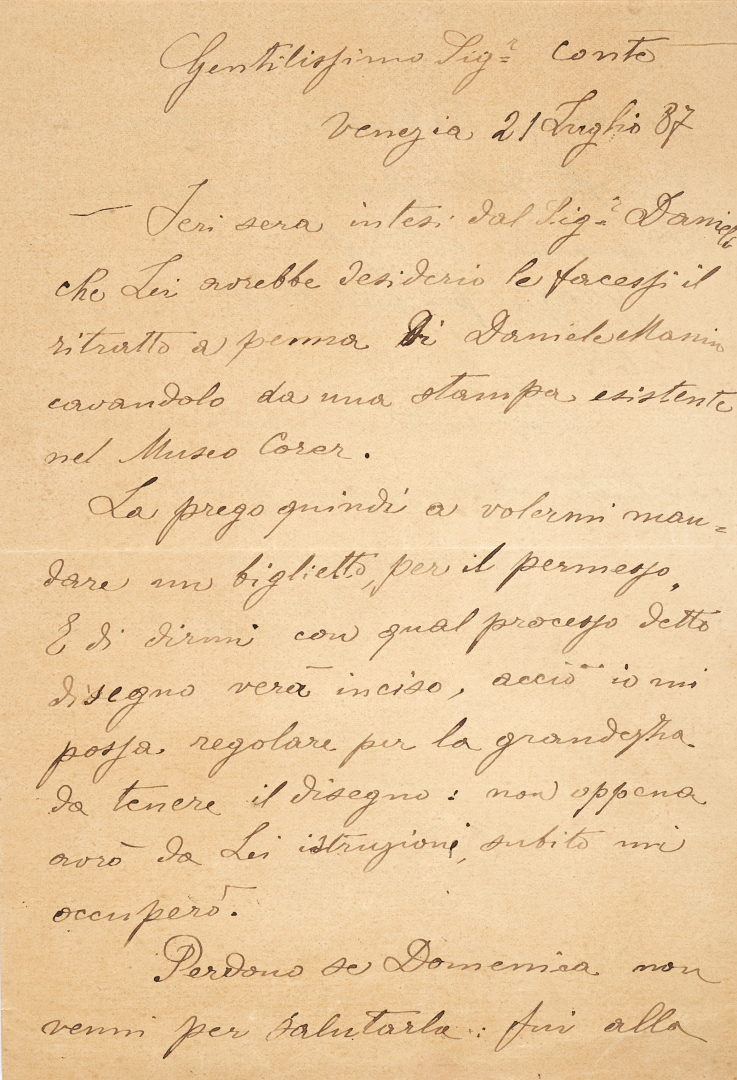 Gentilissimo Sigr. Conte
Venezia 21 Luglio 87
— Jeri sera intesi dal Sigr. Daniele
che Lei avrebbe desiderio le facessi il
ritratto a penna Di Daniele Manin
cavandolo da una stampa esistente
nel Museo Corer.
La prego quindi a volermi man=
dare un biglietto, per il permesso,
E di dirmi con qual processo detto
disegno verà inciso, acciò io mi
possa regolare per la grandezza
da tenere il disegno: non appena
avrò da Lei istruzioni, subito mi
occuperò.
Perdono se Domenica non
venni per salutarla: fui alla